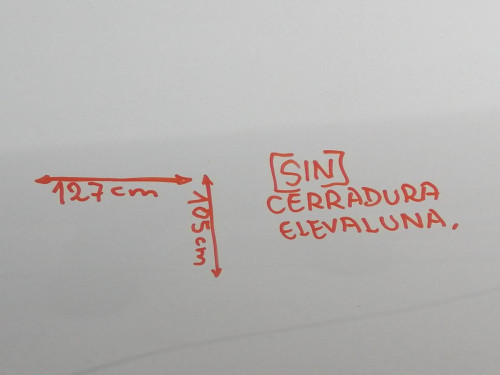 127 cm
105 cm
[SIN]
CERRADURA
ELEVALUNA.